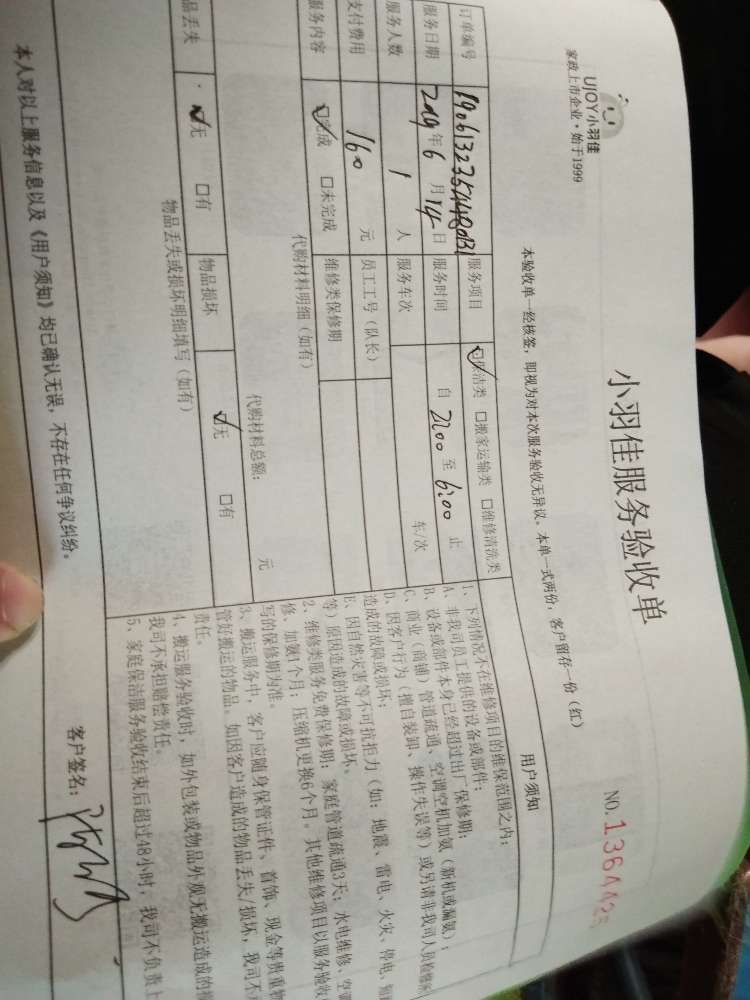 UJOY小羽佳
家政上市企业·始于1999
小羽佳服务验收单
NO.136442
本验收单一经核签，即视为对本次服务验收无异议。本单一式两份，客户留存一份（红）
订单编号
服务项目 保洁类 搬家运输类 维修清洗类
服务日期 2019年6月14日 服务时间 自 2200 至 6:00 止
服务人数 1 人 服务车次 车/次
支付费用 160 元 员工工号（队长）
服务内容 完成 未完成 维修类保修期
代购材料明细（如有）
代购材料总额： 元
品丢失 无 有 物品损坏 无 有
物品丢失或损坏明细填写（如有）
用户须知
1、下列情况不在维修项目的维保范围之内：
A、非我司员工提供的设备或部件；
B、设备或部件本身已经超过出厂保修期；
C、商业（商铺）管道疏通、空调空机加氨（新机或漏氨）；
D、因客户行为（擅自装卸、操作失误等）或另请非我司人员
造成的故障或损坏；
E、因自然灾害等不可抗拒力（如：地震、雷电、火灾、停电、
等）原因造成的故障或损坏。
2、维修类服务免费保修期：家庭管道疏通3天；水电维修、空
修、加氨1个月；压缩机更换6个月。其他维修项目以服务验收
写的保修期为准。
3、搬运服务中，客户应随身保管证件、首饰、现金等贵重物
管好搬运的物品。如因客户造成的物品丢失/损坏，我司不
责任。
4、搬运服务验收时，如外包装或物品外观无搬运造成的
我司不承担赔偿责任。
5、家庭保洁服务验收结束后超过48小时，我司不负责上
本人对以上服务信息以及《用户须知》均已确认无误，不存在任何争议纠纷。
客户签名：